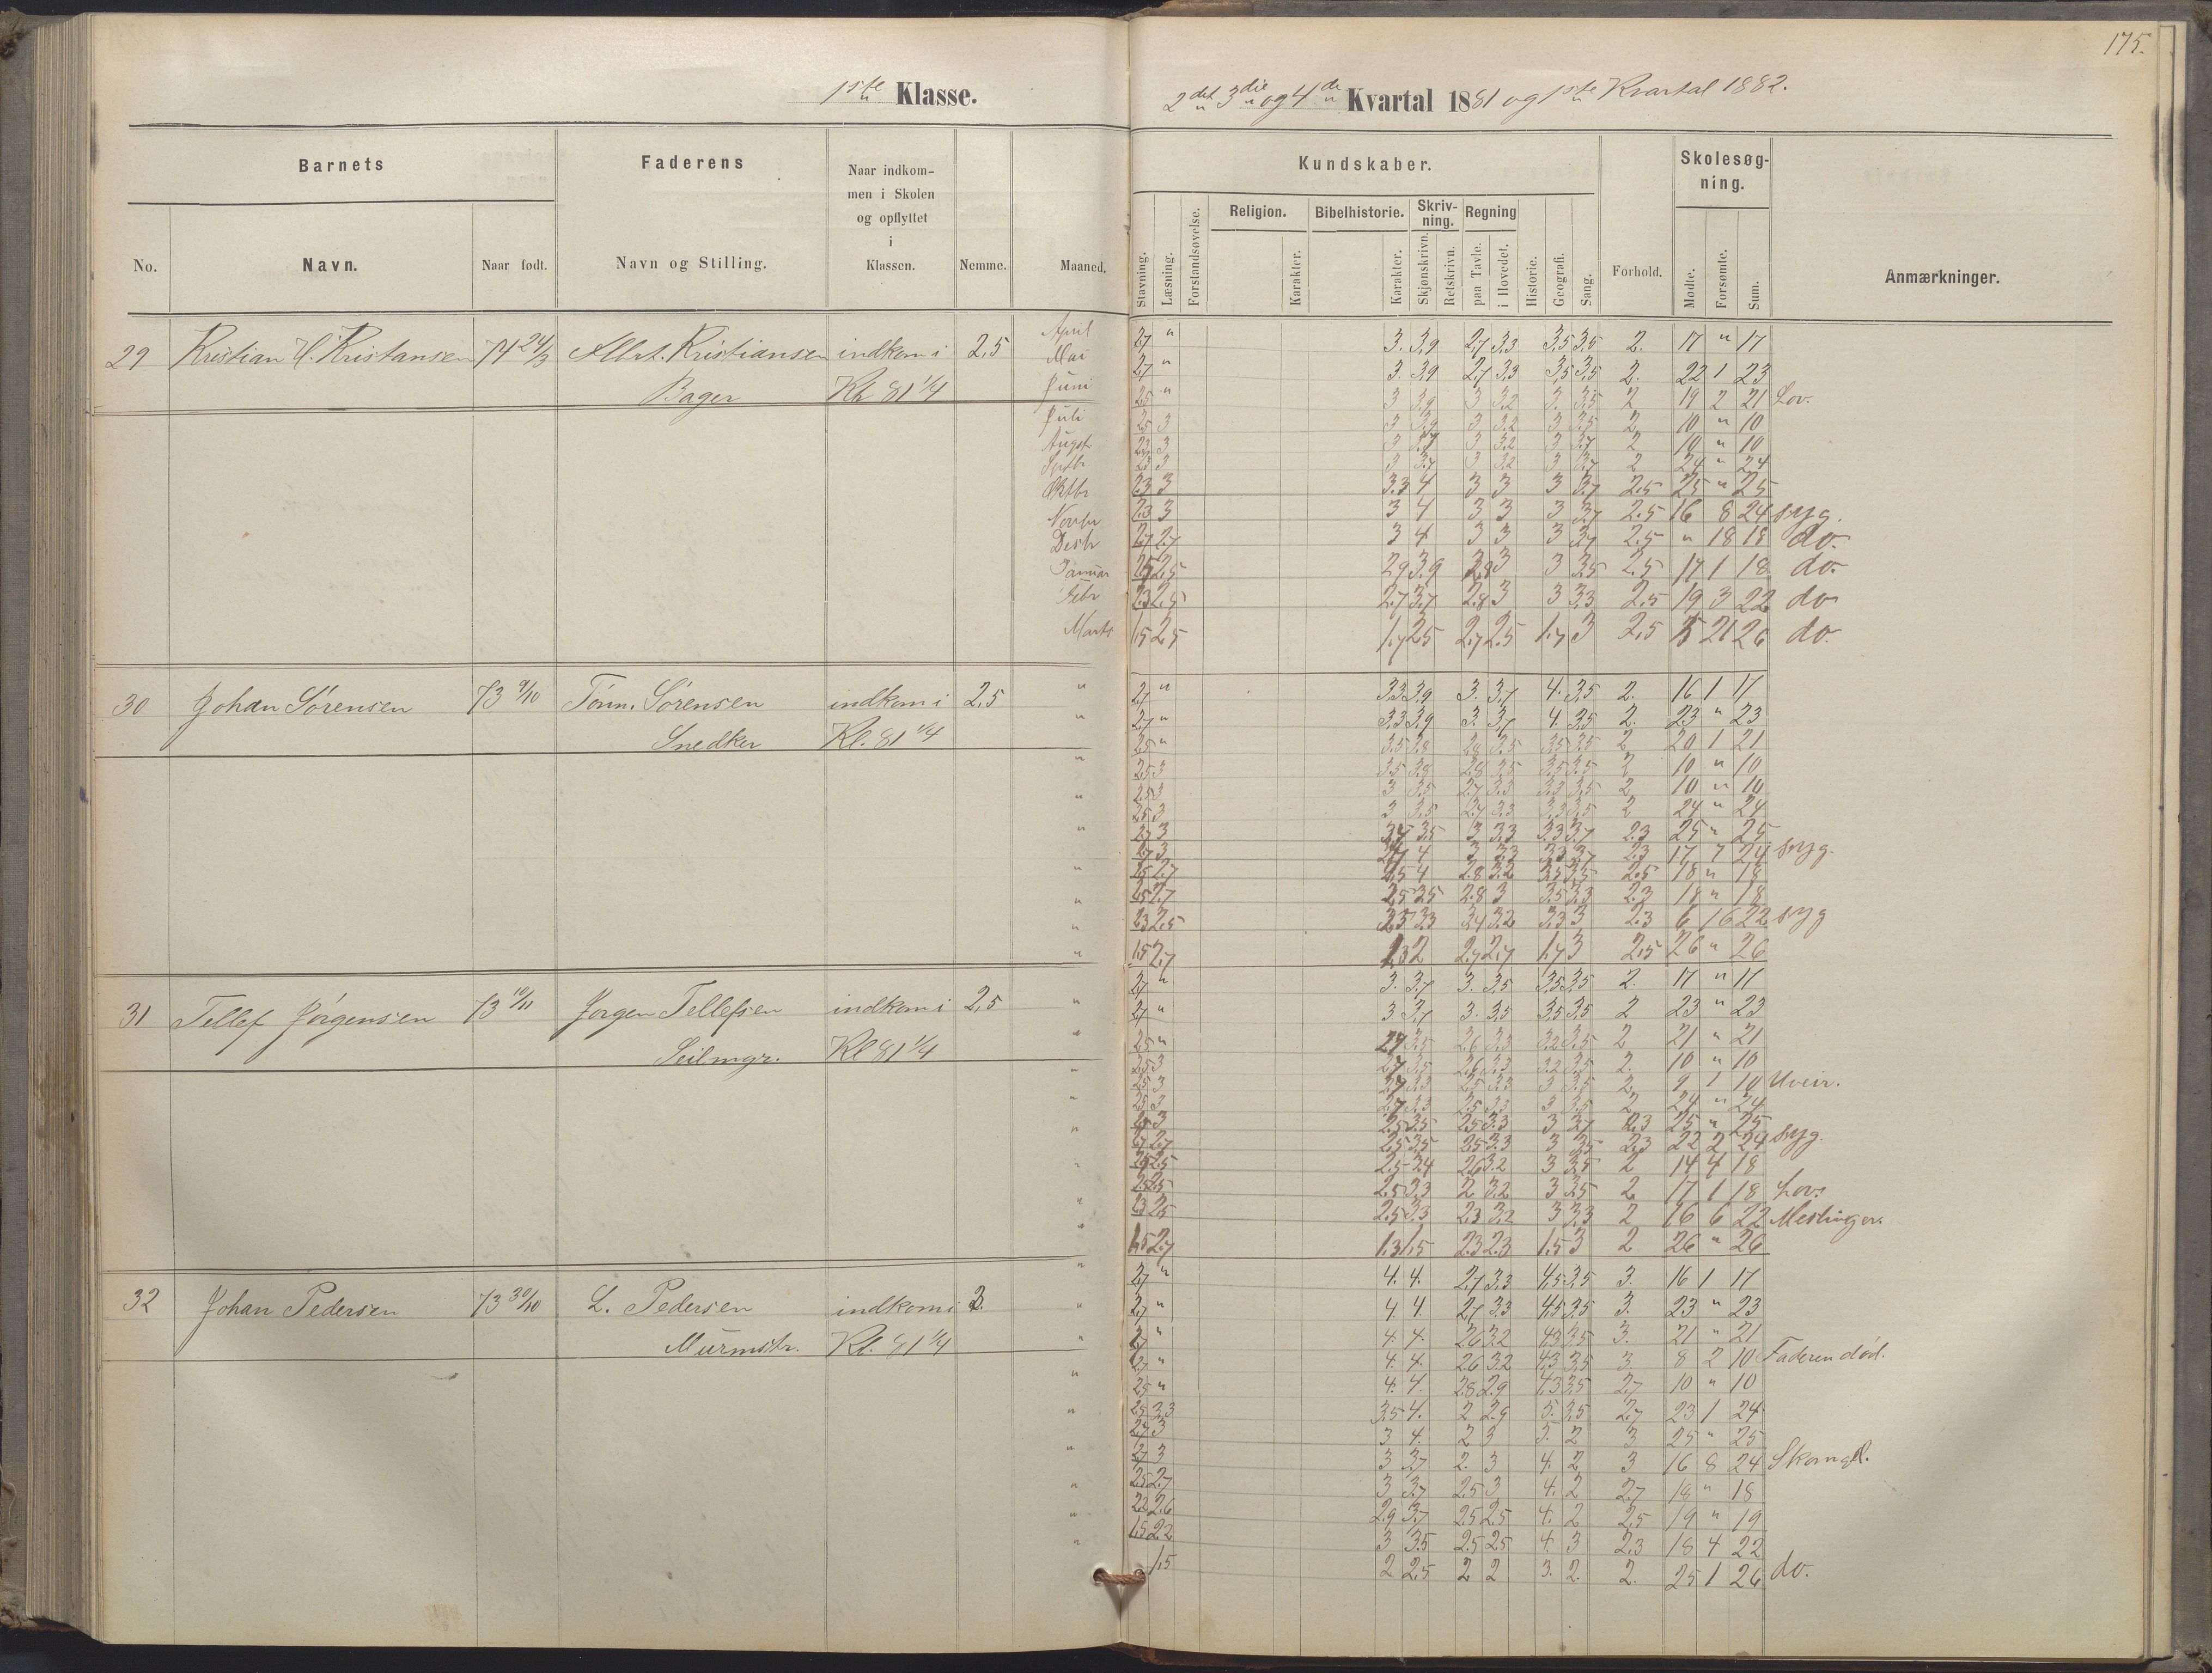 175.
1ste Klasse.
2det 3die og 4de Kvartal 1881 og 1ste Kvartal 1882.
Barnets
Faderens
Naar indkom-
men i Skolen
og opflyttet
i
Klassen.
No.
Navn.
Naar født.
Navn og Stilling.
Nemme.
Maaned.
Kundskaber.
Skolesøg-
ning.
Religion.
Bibelhistorie.
Skriv-
ning.
Regning
Stavning.
Læsning.
Forstandsøvelse.
Karakter.
Karakter.
Skjønskrivn.
Retskrivn.
paa Tavle.
i Hovedet.
Historie.
Geografi.
Sang.
Forhold.
Møde.
Forsømte.
Sum.
Anmærkninger.
29 Kristian H. Kristansen 74 24/3 Albrt. Kristiansen indkom i 2,5
Bager Kl 81 1/4
April 2,7 " 3. 3,9 2,7 3,3 3,5 3,5 2. 17 " 17
Mai 2,7 " 3. 3,9 2,7 3,3 3,5 3,5 2. 22 1 23
Juni 2,5 " 3 3,9 3 3,2 3. 3,5 2 19 2 21 Lov.
Juli 2,5 3 3 3,9 3 3,2 3 3,5 2 10 " 10
Augst 3 3 3 3,2 3 3,7 2 10 " 10
Septbr 3 3 3,7 3 3,2 3 3,7 2 24 " 24
Oktbr 2,3 3 3,3 4 3 3 3 3,7 2,5 25 " 25
Novbr 2,3 3 3 4 3 3 3 3,7 2,5 16 8 24 syg.
Desbr 2,7 2,7 3 4 3 3 3 3,7 2,5 " 18 18 do.
Januar 2,5 2,9 3,9 2,8 3 3 3,5 2,5 17 1 18 do.
Febr 2,3 2,5 2,7 3,7 2,8 3 3 3,3 2,5 19 3 22 do
Marts 1,5 2,5 1,7 2,5 2,7 2,5 1,7 3 2,5 5 21 26 do.
30 Johan Sørensen 73 9/10 Tønn. Sørensen indkom i 2,5
Snedker Kl. 81 1/4
2,7 " 3,3 3,9 3. 3,7 4. 3,5 2. 16 1 17
2,7 " 3,3 3,9 3. 3,7 4. 3,5 2. 23 " 23
2,5 " 3,5 3,8 2,8 3,5 3,5 3,5 2 20 1 21
2,5 3 3,5 3,8 2,8 3,5 3,5 3,5 2 10 " 10
2,5 3 3 3,5 2,7 3,3 3,3 3,5 2 10 " 10
2,5 3 3 3,5 2,7 3,3 3,3 3,5 2 24 " 24
2,7 3 3,5 3 3,3 3,3 3,7 2,3 25 " 25
2,7 3 4 3 3,3 3,3 3,7 2,3 17 7 24 syg.
2,5 2,7 2,5 4 2,8 3,2 3,5 3,5 2,5 18 " 18
2,5 2,7 2,5 3,5 2,8 3 3,5 3,3 2,3 18 " 18
2,3 2,5 3,3 3,2 3,3 3 2,3 6 16 22 syg
1,5 2,7 2 2,7 2,7 1,7 3 2,5 26 " 26
31 Tellef Jørgensen 73 10/11 Jørgen Tellefsen indkom i 2,5
Seilmgr. Kl 81 1/4
2,7 " 3. 3,7 3. 3,5 3,5 3,5 2. 17 " 17
2,7 " 3 3,7 3. 3,5 3,5 3,5 2 23 " 23
2,5 " 3,5 2,6 3,3 3,2 3,5 2 21 " 21
2,5 3 2,7 3,5 2,6 3,3 3,2 3,5 2. 10 " 10
2,5 3 2,7 3,3 2,5 3,3 3 3,5 2 9 1 10 Uveir.
2,5 3 2,7 3,3 2,5 3,3 3 3,5 2 24 " 24
3 2,5 3,5 2,5 3,3 3 3,7 2,3 25 " 25
2,7 2,5 3,5 2,5 3,3 3 3,5 2,3 22 2 24 syg.
2,5 2,5 3,4 2,6 3,2 3 3,5 2 14 4 18
2,5 2,5 3,3 2 3,2 3 3,5 2 17 1 18 Lov.
2,3 2,5 2,5 3,3 2,3 3,2 3 3,3 2 16 6 22 Meslinger.
1,5 2,7 1,3 1,5 2,3 2,3 1,5 3 2 26 " 26
32 Johan Pedersen 73 30/10 L. Pedersen indkom i 3.
Murmstr. Kl. 81 1/4
2,7 " 4. 4. 2,7 3,3 4,5 3,5 3. 16 1 17
2,7 " 4. 4. 2,7 3,3 4,5 3,5 3. 23 " 23
2,7 " 4. 4. 2,6 3,2 4,3 3,5 3. 21 " 21
2,7 " 4. 4. 2,6 3,2 4,3 3,5 3. 8 2 10 Faderen død.
2,5 " 4. 4. 2,8 2,9 4,3 3,5 2,7 10 " 10
2,5 3,3 3,5 4. 2 2,9 5. 3,5 2,7 23 1 24
2,7 3 3 4. 2 3 3. 2 3 25 " 25
2,7 3 3 3,7 2. 3 4. 2 3 16 8 24 Skomgl.
2,5 2,7 3 3,7 2,5 3 4. 2 2,7 18 " 18
2,2 2,6 2,9 3,7 2,5 2,5 4. 2 2,5 19 " 19
1,5 2,2 3 3,5 2,5 2,5 4. 3 2,3 18 4 22
1,5 2 2,5 2 2 3. 2. 2. 25 1 26 do.